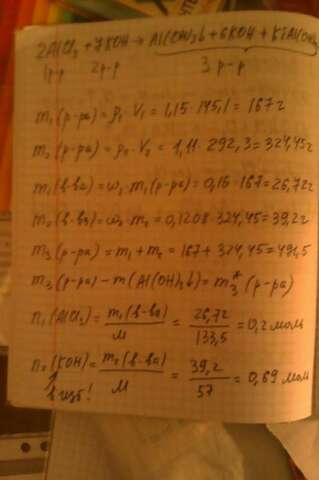 2AlCl₃ + 7KOH → Al(OH)₃↓ + 6KCl + K[Al(OH)₄]
1 р-р 2 р-р 3 р-р
m₁(р-ра) = ρ₁·V₁ = 1,15·145,1 = 167г
m₂(р-ра) = ρ₂·V₂ = 1,11·292,3 = 324,45г
m₁(в-ва) = ω₁·m₁(р-ра) = 0,16·167 = 26,72г
m₂(в-ва) = ω₂·m₂ = 0,1208·324,45 = 39,2г
m₃(р-ра) = m₁ + m₂ = 167 + 324,45 = 491,5
m₃(р-ра) - m(Al(OH)₃↓) = m₃*(р-ра)
n₁(AlCl₃) = m₁(в-ва)/М = 26,72/133,5 = 0,2 моль
n₂(KOH) = m₂(в-ва)/М = 39,2/57 = 0,69 моль
в изб!